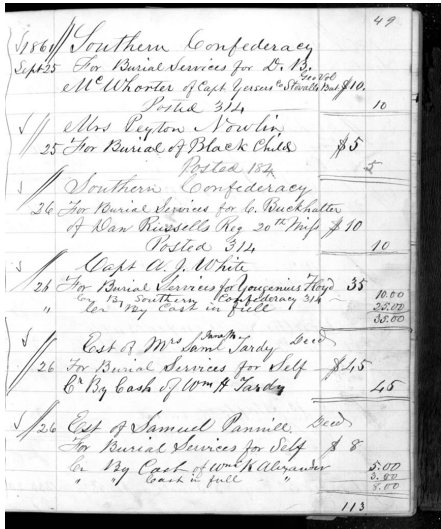 49
1861 Southern Confederacy
Sept 25 For Burial Services for D. B. Geo Vol
McWhorter of Capt Co Stovalls Bat. $10.
Posted 314 10
Mrs Peyton Nowlin
25 For Burial of Black Child $5
Posted 184 5
Southern Confederacy
26 For Burial Services for C. Buckhalter
of Dan Russells Reg 20th Miss $10
Posted 314 10
Capt A. J. White
26 For Burial Services for Yougenius Floyd 35
Cr By Southern Confederacy 314 10.00
" Cr By Cash in full 25.00
35.00
Est of Mrs Saml Tardy Decd
26 For Burial Services for Self $45
Cr By Cash of Wm H Tardy 45
26 Est of Samuel Pannill Decd
For Burial Services for Self $8
Cr By Cash of Wm K Alexander 5.00
" " Cash in full " 3.00
8.00
113